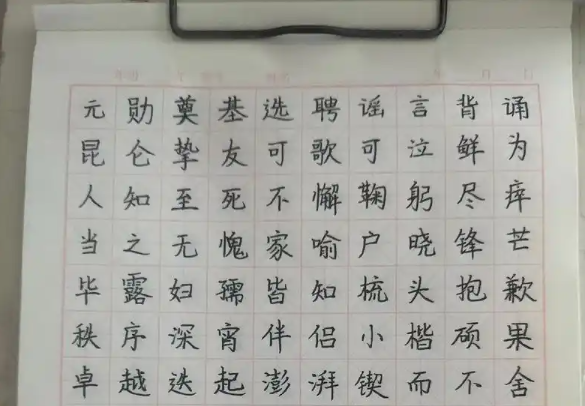 元勋奠基选聘谣言背诵
昆仑挚友可歌可泣鲜为
人知至死不懈鞠躬尽瘁
当之无愧家喻户晓锋芒
毕露妇孺皆知梳头抱歉
秩序深宵伴侣小楷硕果
卓越迭起澎湃锲而不舍